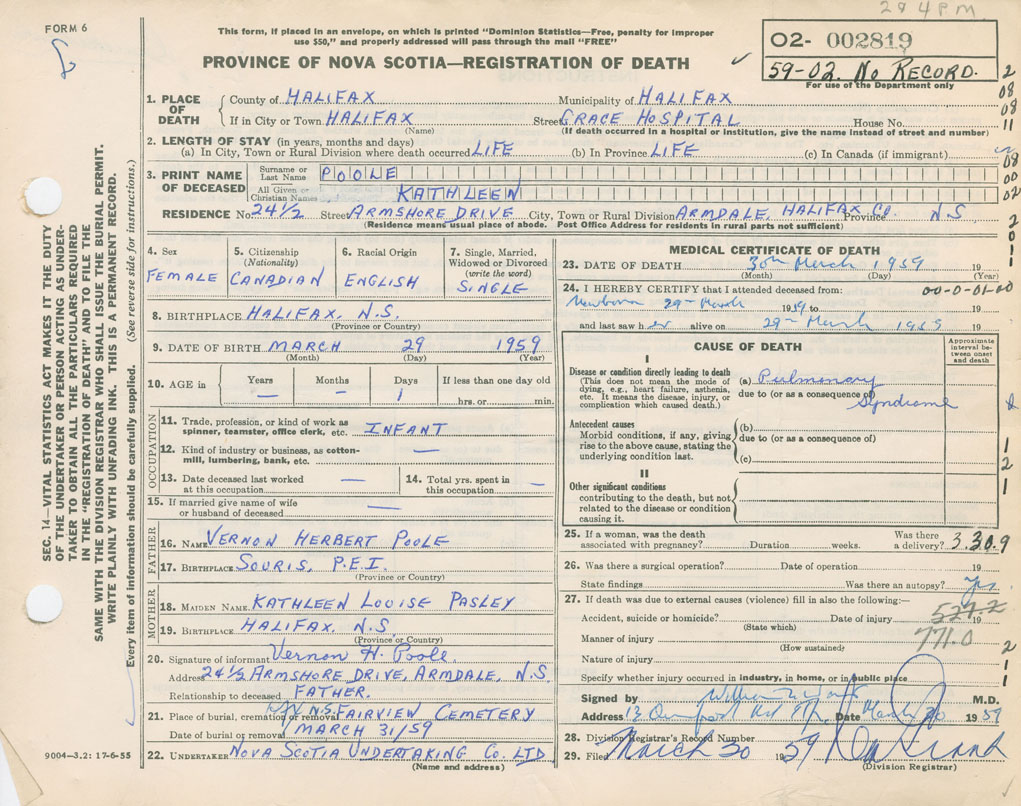 2 9 4 P M
FORM 6
This form, if placed in an envelope, on which is printed "Dominion Statistics—Free, penalty for improper
use $50," and properly addressed will pass through the mail "FREE"
PROVINCE OF NOVA SCOTIA—REGISTRATION OF DEATH
02- 002819
59-02. No RECORD.
For use of the Department only
SEC. 14—VITAL STATISTICS ACT MAKES IT THE DUTY
OF THE UNDERTAKER OR PERSON ACTING AS UNDER-
TAKER TO OBTAIN ALL THE PARTICULARS REQUIRED
IN THE "REGISTRATION OF DEATH" AND TO FILE THE
SAME WITH THE DIVISION REGISTRAR WHO SHALL ISSUE THE BURIAL PERMIT.
WRITE PLAINLY WITH UNFADING INK. THIS IS A PERMANENT RECORD.
Every item of information should be carefully supplied. (See reverse side for instructions.)
1. PLACE OF DEATH County of HALIFAX Municipality of HALIFAX
If in City or Town HALIFAX Street GRACE HOSPITAL House No.
(Name) (If death occurred in a hospital or institution, give the name instead of street and number)
2. LENGTH OF STAY (in years, months and days)
(a) In City, Town or Rural Division where death occurred LIFE (b) In Province LIFE (c) In Canada (if immigrant)
3. PRINT NAME OF DECEASED Surname or Last Name POOLE
All Given or Christian Names KATHLEEN
RESIDENCE No. 24 1/2 Street ARMSHORE DRIVE City, Town or Rural Division ARMDALE, HALIFAX Co. Province N.S
(Residence means usual place of abode. Post Office Address for residents in rural parts not sufficient)
4. Sex FEMALE
5. Citizenship (Nationality) CANADIAN
6. Racial Origin ENGLISH
7. Single, Married, Widowed or Divorced (write the word) SINGLE
8. BIRTHPLACE HALIFAX, N.S.
(Province or Country)
9. DATE OF BIRTH MARCH 29 1959
(Month) (Day) (Year)
10. AGE in Years — Months — Days 1 If less than one day old
hrs. or min.
OCCUPATION
11. Trade, profession, or kind of work as
spinner, teamster, office clerk, etc. INFANT
12. Kind of industry or business, as cotton-
mill, lumbering, bank, etc. —
13. Date deceased last worked
at this occupation —
14. Total yrs. spent in
this occupation —
15. If married give name of wife
or husband of deceased —
FATHER
16. NAME VERNON HERBERT POOLE
17. BIRTHPLACE SOURIS, P.E.I.
(Province or Country)
MOTHER
18. MAIDEN NAME KATHLEEN LOUISE PASLEY
19. BIRTHPLACE HALIFAX, N.S.
(Province or Country)
20. Signature of informant Vernon H. Poole.
Address 24 1/2 ARMSHORE DRIVE, ARMDALE, N.S.
Relationship to deceased FATHER.
21. Place of burial, cremation or removal FAIRVIEW CEMETERY
Date of burial or removal MARCH 31/59
22. UNDERTAKER NOVA SCOTIA UNDERTAKING Co. LTD
(Name and address)
9004—3.2: 17-6-55
MEDICAL CERTIFICATE OF DEATH
23. DATE OF DEATH 30th March 1959 19
(Month) (Day) (Year)
24. I HEREBY CERTIFY that I attended deceased from: 00-0-01-00
Newborn 29th March 1959 to 19
and last saw her alive on 29th March 1959 19
CAUSE OF DEATH
Approximate interval between onset and death
I
Disease or condition directly leading to death
(This does not mean the mode of
dying, e.g., heart failure, asthenia,
etc. It means the disease, injury, or
complication which caused death.)
(a) Pulmonary
due to (or as a consequence of)
Syndrome
Antecedent causes
Morbid conditions, if any, giving
rise to the above cause, stating the
underlying condition last.
(b)
due to (or as a consequence of)
(c)
II
Other significant conditions
contributing to the death, but not
related to the disease or condition
causing it.
25. If a woman, was the death
associated with pregnancy? Duration weeks. Was there
a delivery? 3.30.9
26. Was there a surgical operation? Date of operation 19
State findings Was there an autopsy? Yes.
27. If death was due to external causes (violence) fill in also the following:—
527.2
Accident, suicide or homicide? Date of injury 19
(State which) 771.0
Manner of injury
(How sustained)
Nature of injury
Specify whether injury occurred in industry, in home, or in public place
Signed by M.D.
Address Date March 30 1959
28. Division Registrar's Record Number
29. Filed March 30 1959
(Division Registrar)
2
08
08
11
08
00
02
2
0
1
1
1
2
1
2
1
1